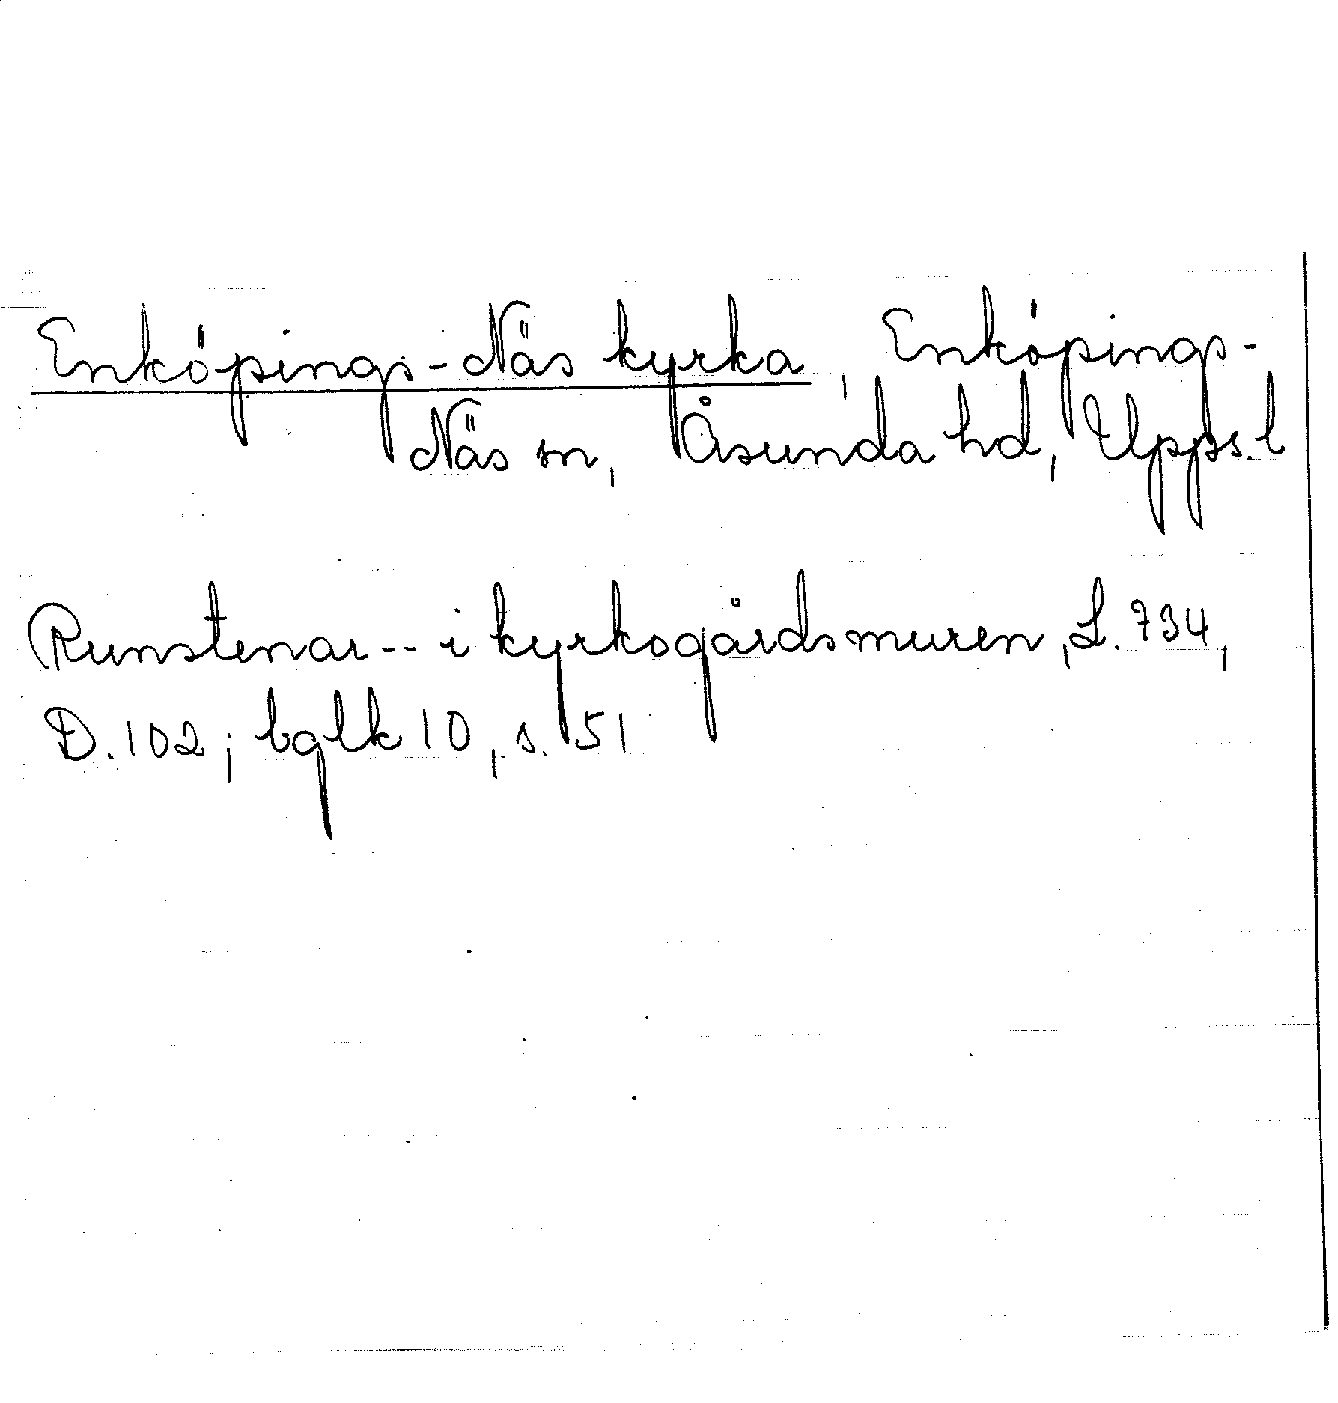 Enköpings-Näs kyrka, Enköpings-
Näs sn, Åsunda hd, Upps. l
Runstenar -- i kyrkogårdsmuren, L. 734,
D. 102; bglk 10, s. 151